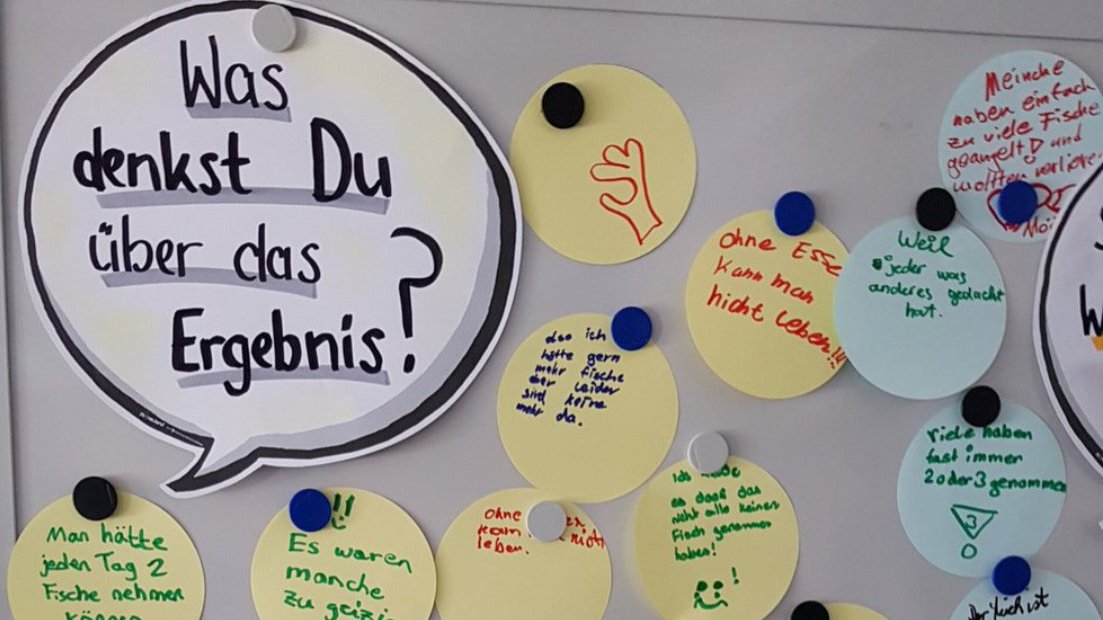 Was
denkst Du
über das
Ergebnis?
Meinche
haben einfach
zu viele Fische
geangelt und
wollten
ohne Esse
kann man
nicht leben!!!
Weil
jeder was
anderes gedacht
hat.
also ich
hätte gern
mehr fische
aber leider
sind keine
mehr da.
Viele haben
fast immer
2 oder 3 genommen
3
Man hätte
jeden Tag 2
Fische nehmen
können
!!
Es waren
manche
zu geizi
ohne
kann
leben.
Ich
es doof das
nicht alle keinen
Fisch genommen
haben!
!
ist